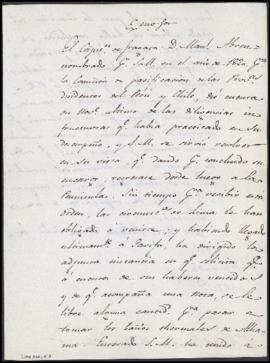 Exmo Sor
El Capn. de fragata D. Manl. Abreu
nombrado Pr. S.M. en el año de 1820, Pa.
la Comision de pacificacion de las Provs.
disidentes del Perú y Chile, dió cuenta
en ultimo de las diligencias in-
fructuosas que había practicado en su
desempeño, y S.M. se sirvió resolver
en su vista, que dando Pr. concluido su
encargo regresase desde luego a la
Peninsula. Sin tiempo Pa. recibir esta
orden, las de Lima le han
obligado á venirse; y habiendo llegado
ultimamte. á ha dirigido la
adjunta instancia en que solicita que
á cuenta de sus haberes vencidos
y de que acompaña una nota, se le
libre alguna cantd. Pa. pasar a
tomar los baños thermales de Alha-
ma Enterado S.M. ha venido á